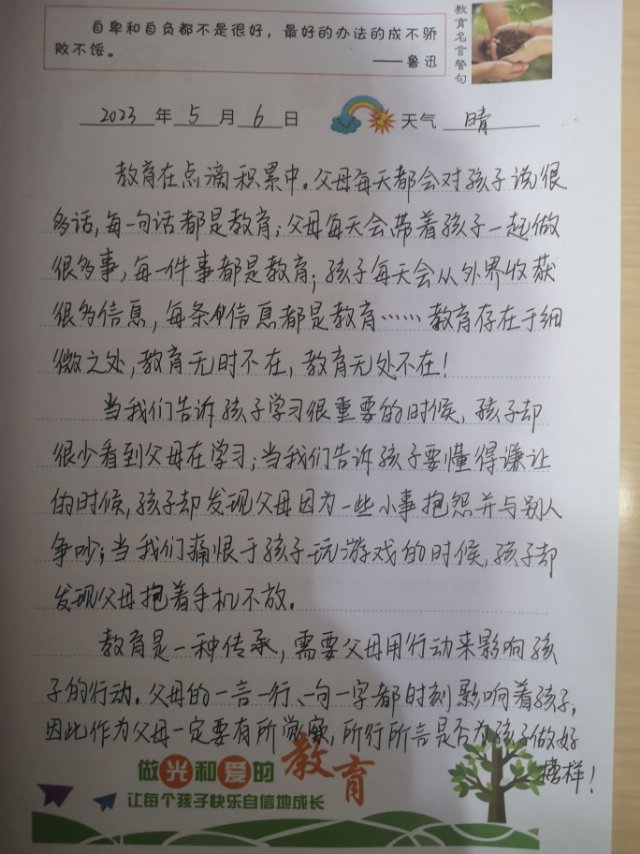 自卑和自负都不是很好，最好的办法的成不骄
败不馁。
——鲁迅
教育名言警句
2023 年 5 月 6 日 天气 晴
教育在点滴积累中。父母每天都会对孩子说很
多话，每一句话都是教育；父母每天会带着孩子一起做
很多事，每一件事都是教育；孩子每天会从外界收获
很多信息，每条信息都是教育……教育存在于细
微之处，教育无时不在，教育无处不在！
当我们告诉孩子学习很重要的时候，孩子却
很少看到父母在学习；当我们告诉孩子要懂得谦让
的时候，孩子却发现父母因为一些小事抱怨并与别人
争吵；当我们痛恨于孩子玩游戏的时候，孩子却
发现父母抱着手机不放。
教育是一种传承，需要父母用行动来影响孩
子的行动。父母的一言一行、一句一字都时刻影响着孩子，
因此作为父母一定要有所觉察，所行所言是否为孩子做好
榜样！
做光和爱的教育
让每个孩子快乐自信地成长